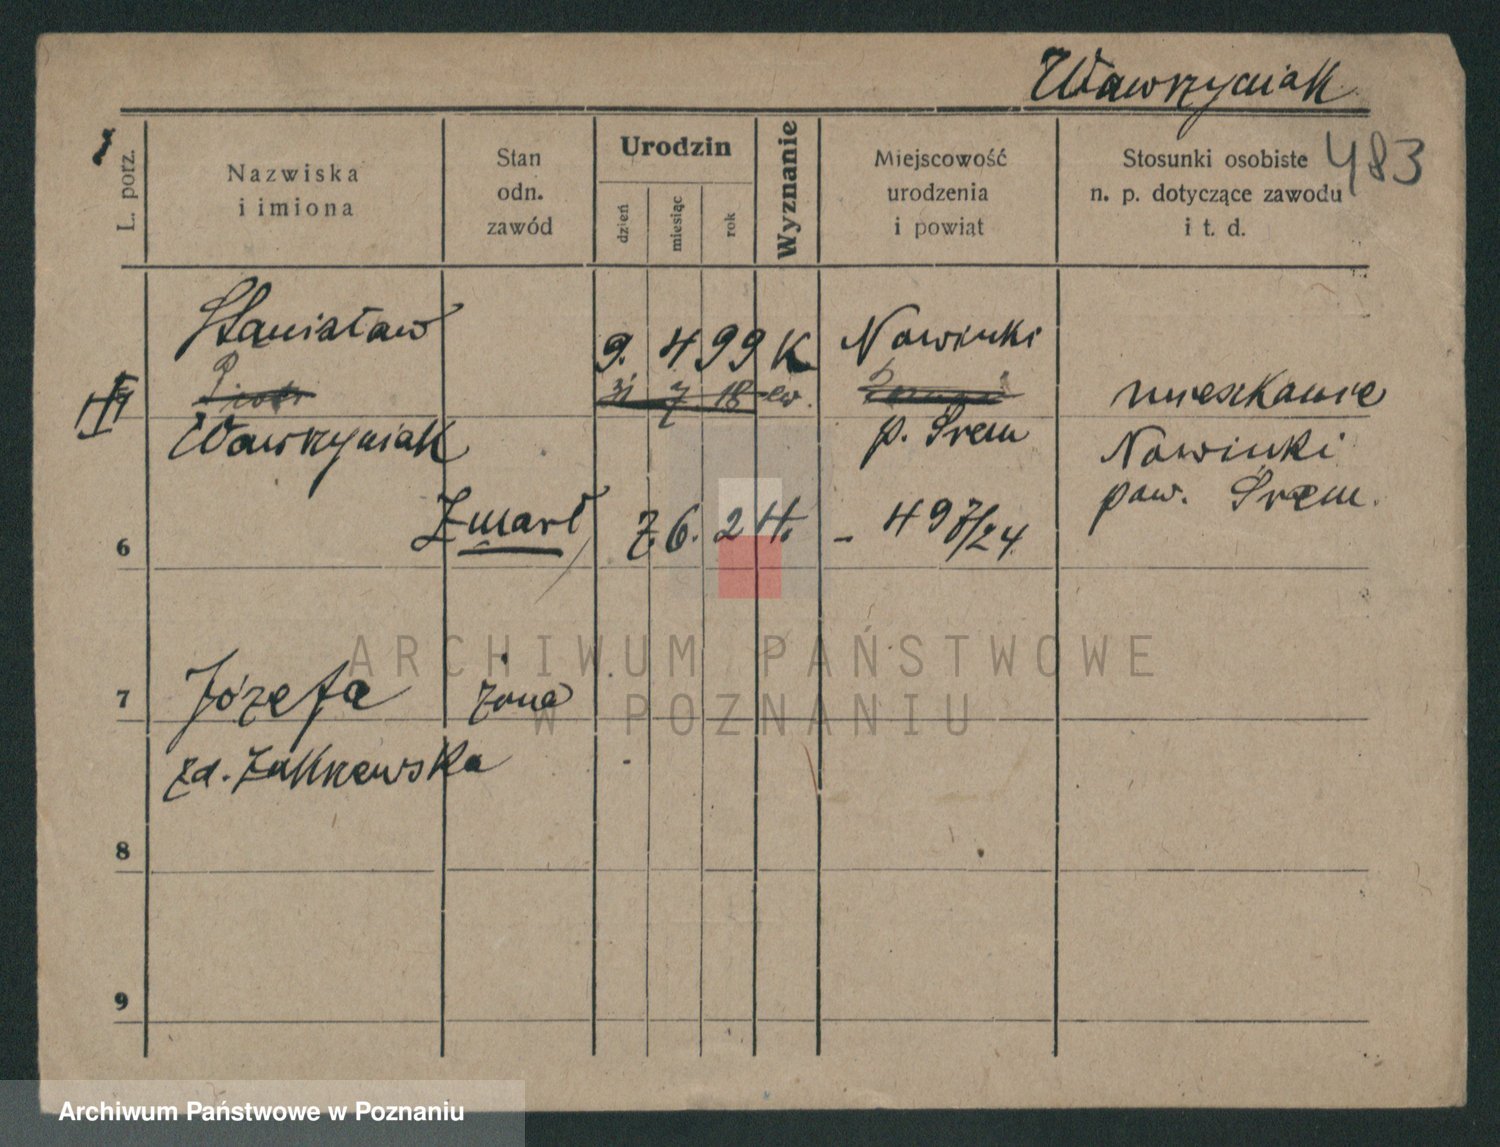 Wawrzyniak
483
L. porz.
Nazwiska
i imiona
Stan
odn.
zawód
Urodzin
dzień
miesiąc
rok
Wyznanie
Miejscowość
urodzenia
i powiat
Stosunki osobiste
n. p. dotyczące zawodu
i t. d.
Stanisław
9. 4 99 K Nowinki
Piotr 31 7 18 ew.
mieszkanie
Wawrzyniak
p. Śrem
Nowinki
pow. Śrem.
6 Zmarł 7. 6. 24. - 497/24
7 Józefa żona
zd. Żółkiewska
8
9
ARCHIWUM PAŃSTWOWE
W POZNANIU
Archiwum Państwowe w Poznaniu